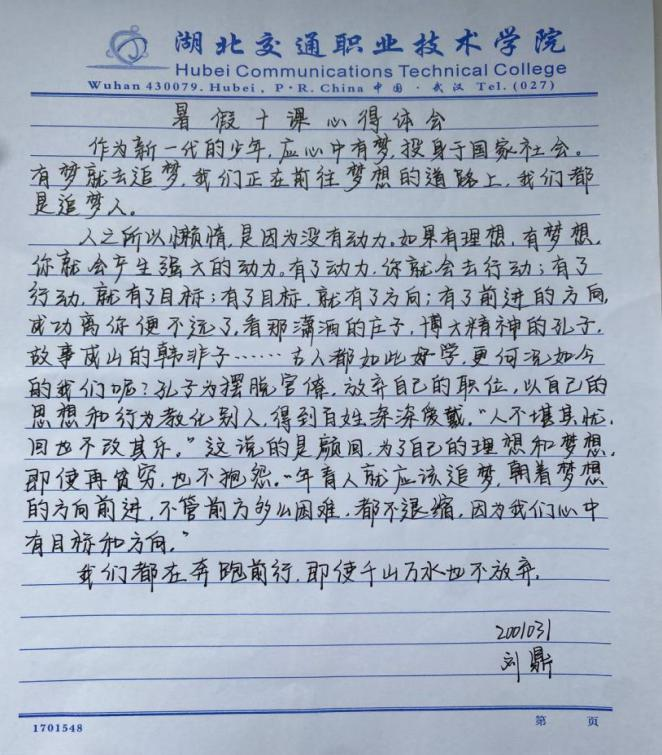 湖北交通职业技术学院
Hubei Communications Technical College
Wuhan 430079. Hubei, P·R. China 中国·武汉 Tel. (027)
暑假十课心得体会
作为新一代的少年,应心中有梦,投身于国家社会。
有梦就去追梦,我们正在前往梦想的道路上,我们都
是追梦人。
人之所以懒惰,是因为没有动力。如果有理想,有梦想,
你就会产生强大的动力。有了动力,你就会去行动;有了
行动,就有了目标;有了目标,就有了方向;有了前进的方向,
成功离你便不远了,看那潇洒的庄子,博大精神的孔子,
故事成山的韩非子……古人都如此好学,更何况如今
的我们呢?孔子为摆脱官僚,放弃自己的职位,以自己的
思想和行为教化别人,得到百姓深深爱戴。“人不堪其忧,
回也不改其乐。”这说的是颜回,为了自己的理想和梦想,
即使再贫穷,也不抱怨。“年青人就应该追梦,朝着梦想
的方向前进,不管前方多么困难,都不退缩,因为我们心中
有目标和方向。”
我们都在奔跑前行,即使千山万水也不放弃.
2001031
刘鼎
1701548 第 页